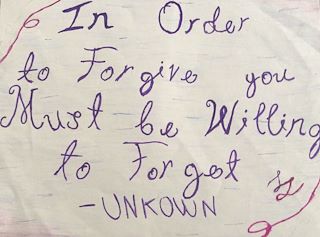 In Order
to Forgive you
Must be Willing
to Forget
-UNKOWN